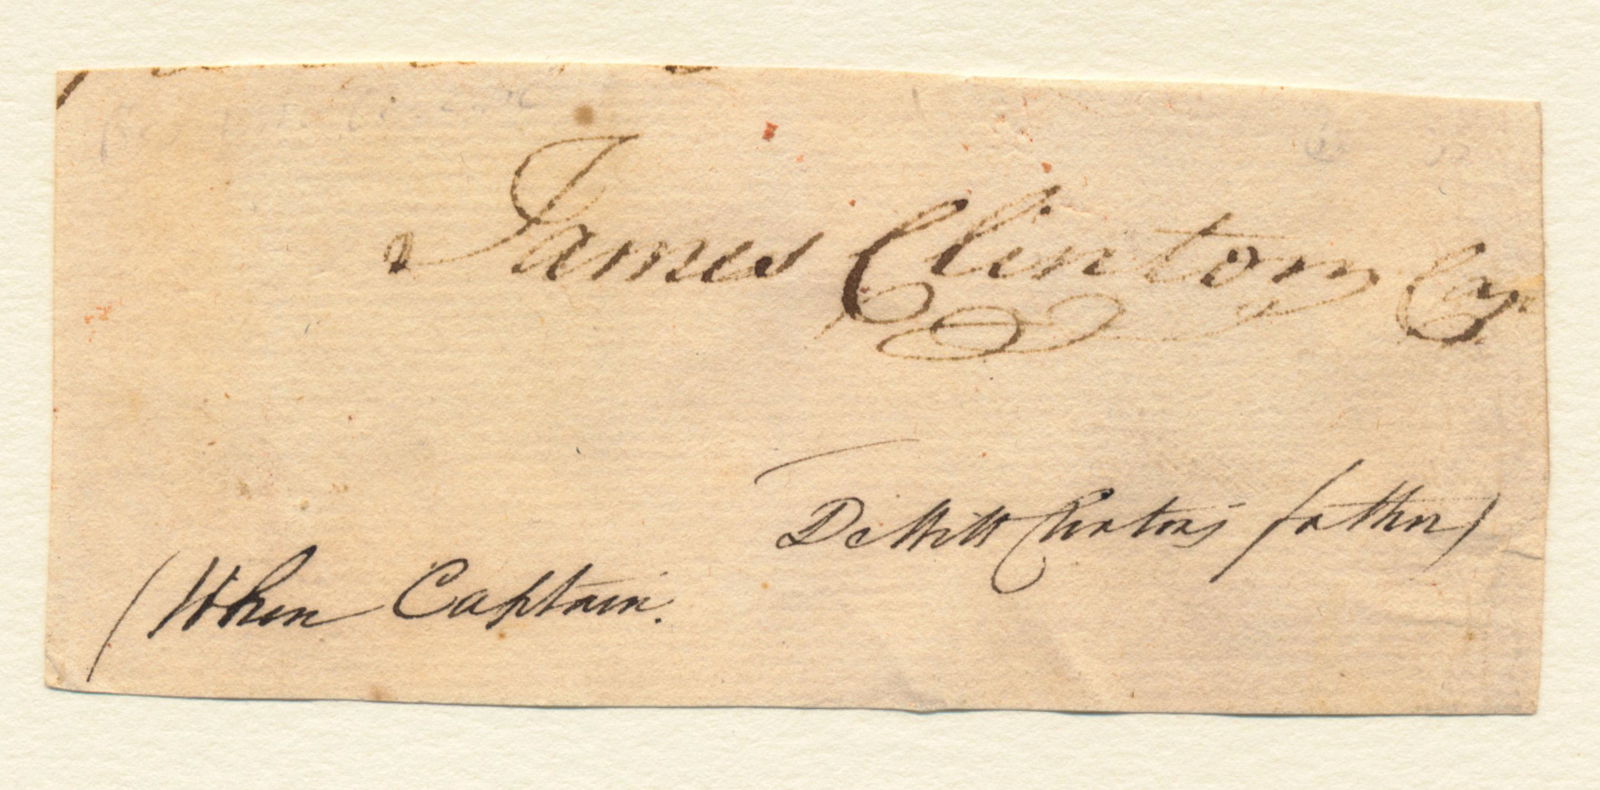 James Clinton Cap
DeWitt Clinton's father)
(When Captain.